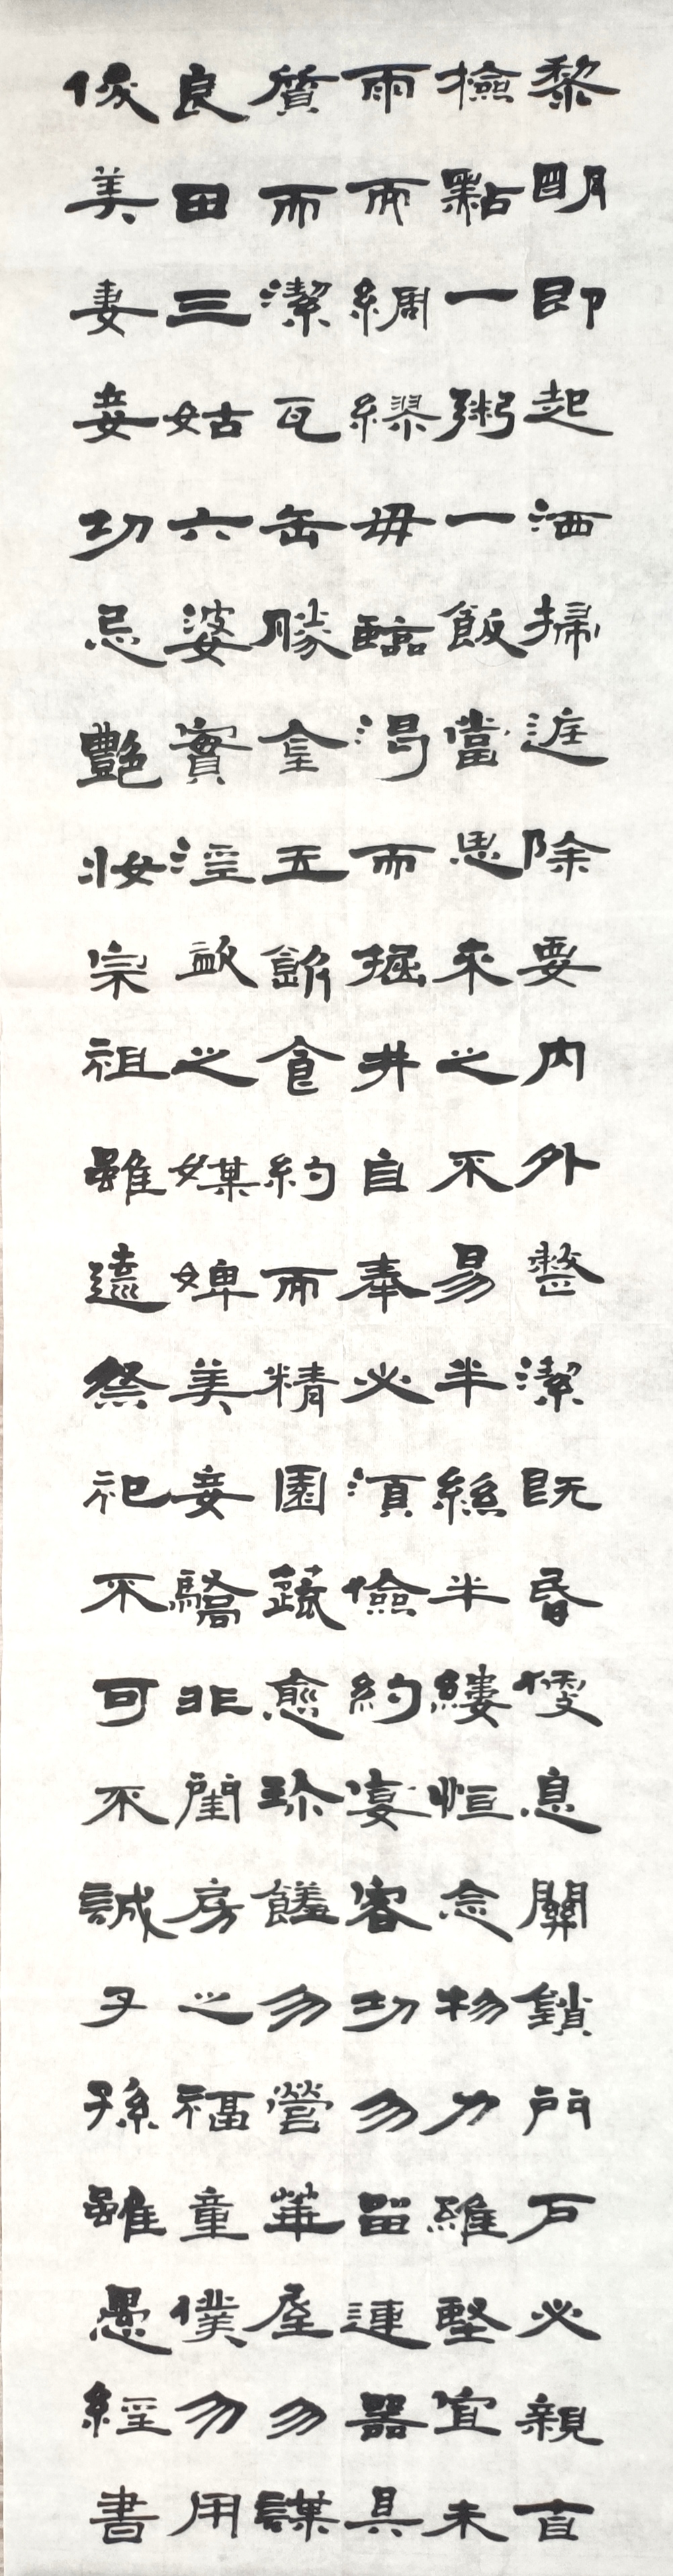 黎明即起洒掃庭除要内外整潔既昏便息關鎖門户必親自
檢點一粥一飯當思來之不易半絲半縷恒念物力維堅宜未
雨而綢繆毋臨渴而掘井自奉必須儉約宴客切勿留連器具
質而潔瓦缶勝金玉飲食約而精園蔬愈珍饈勿營華屋勿謀
良田三姑六婆實淫盜之媒婢美妾驕非閨房之福童僕勿用
俊美妻妾切忌艷妝宗祖雖遠祭祀不可不誠子孫雖愚經書